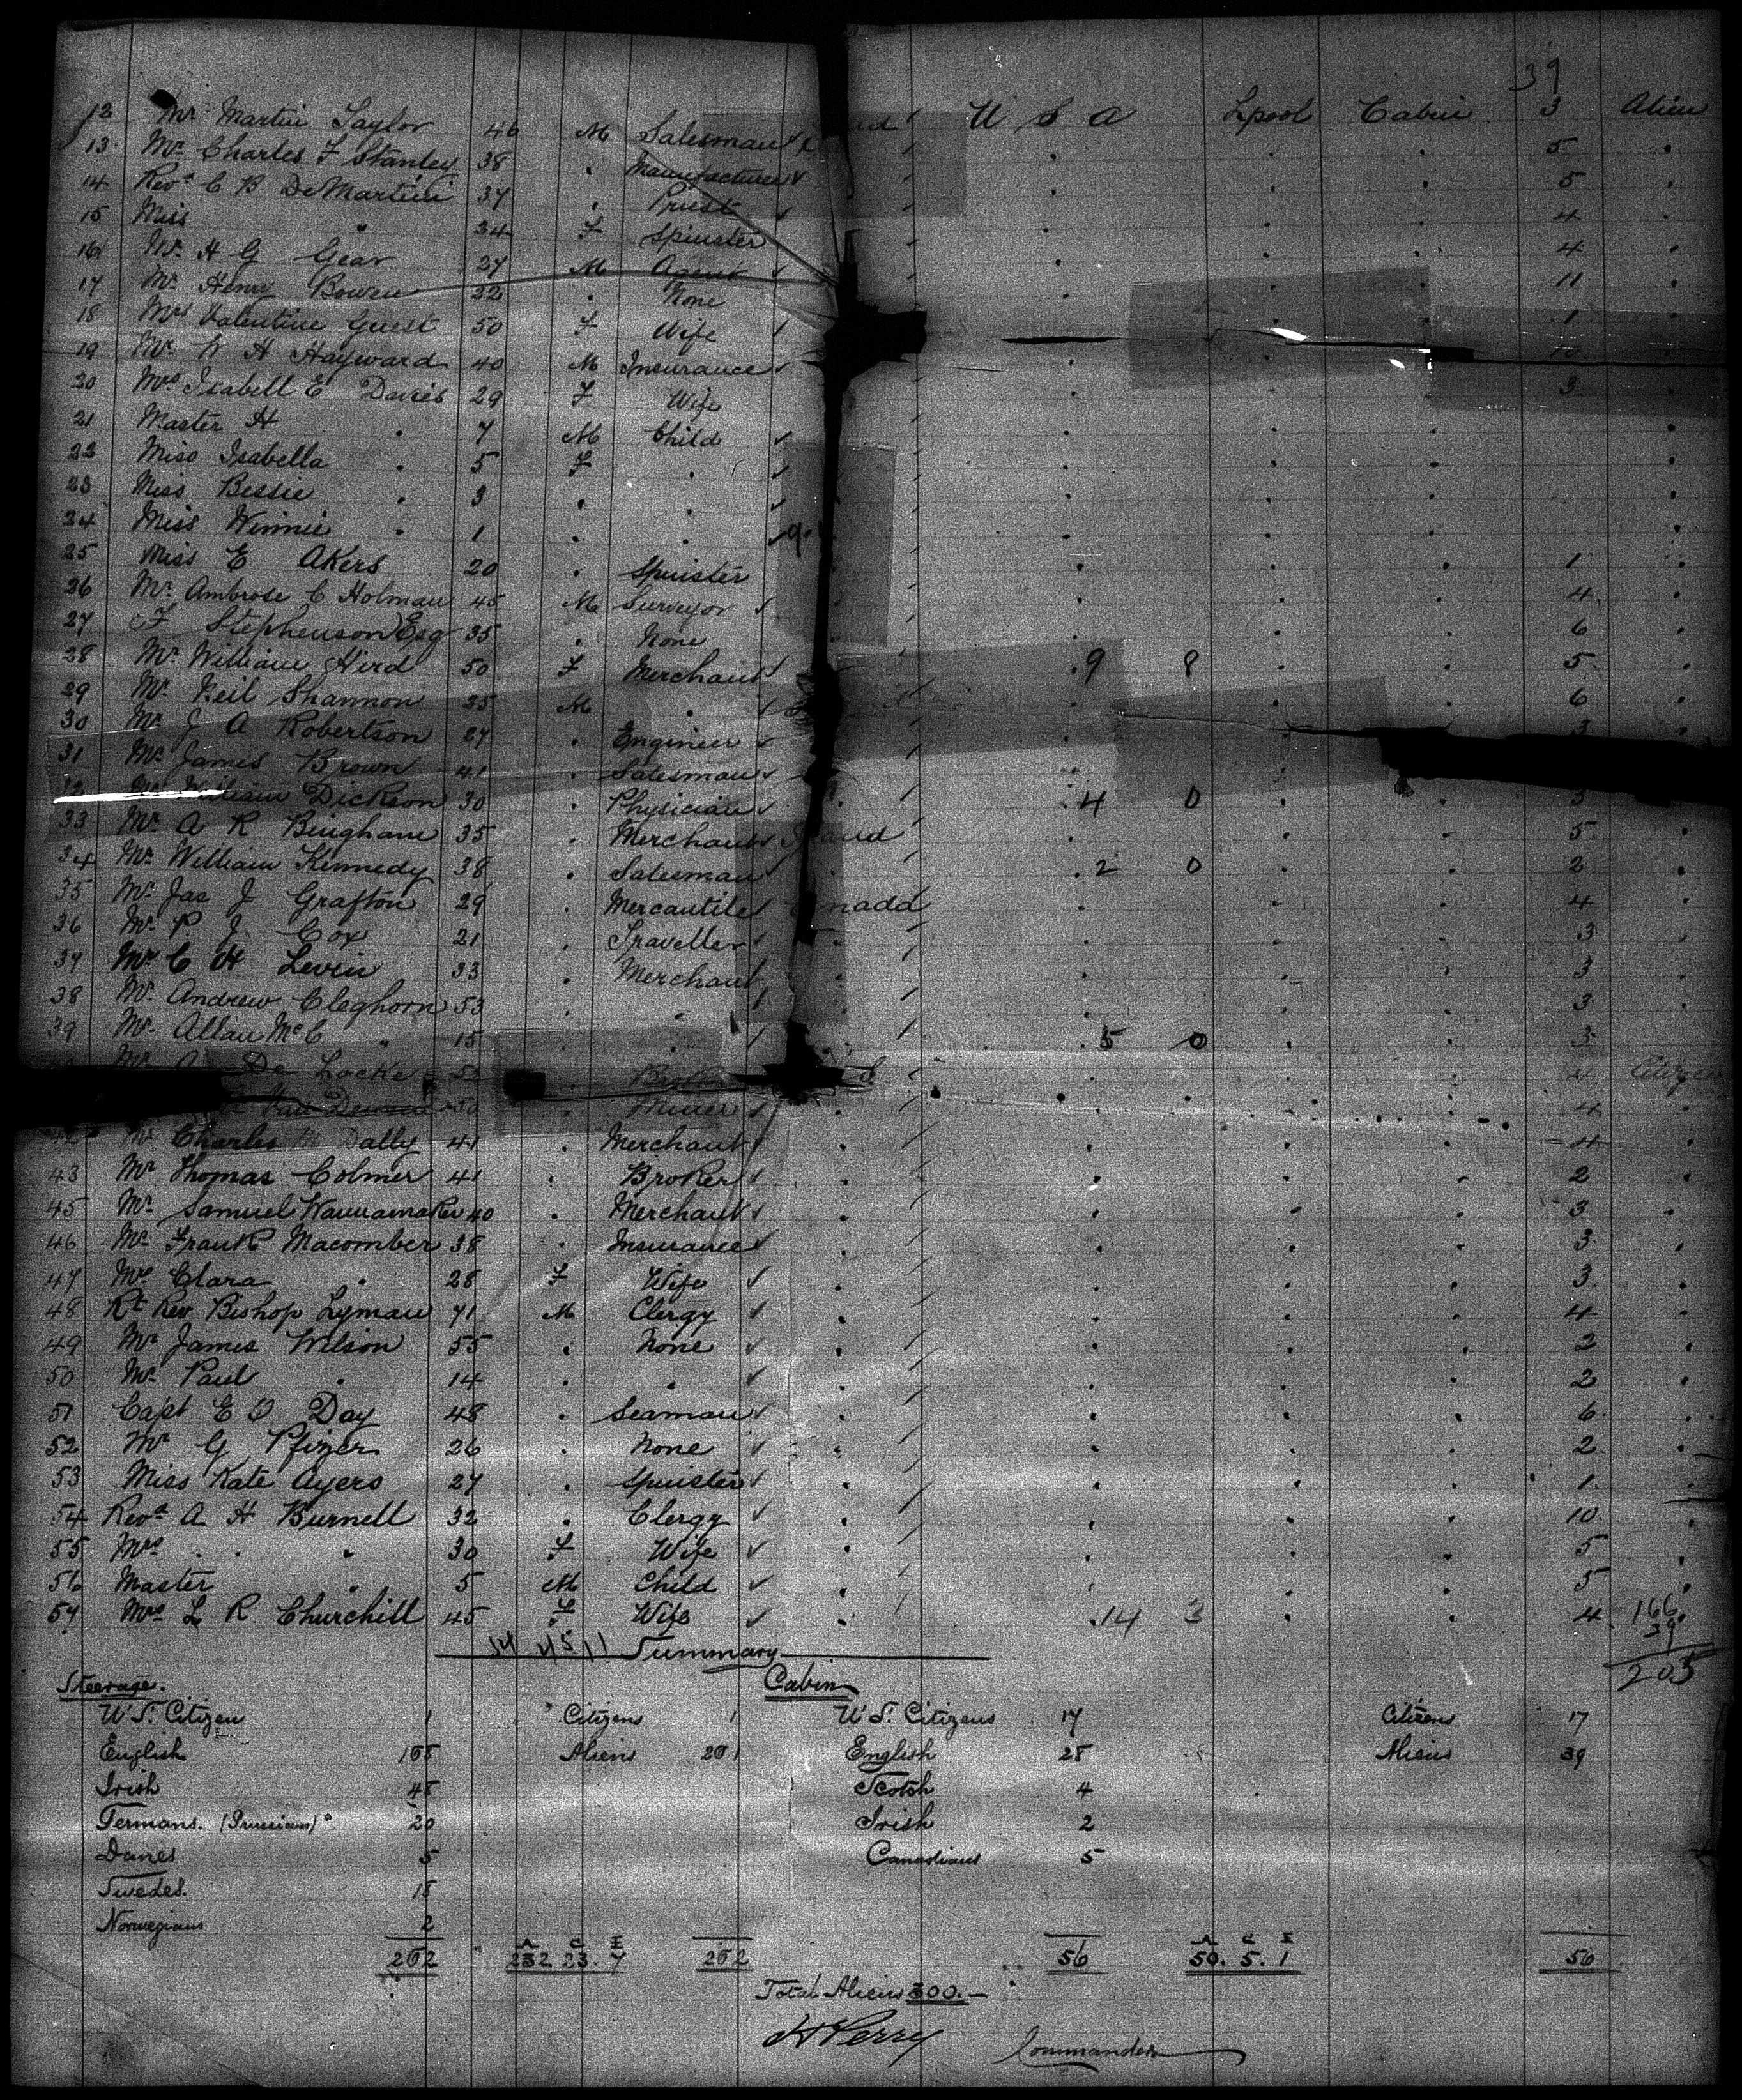 39
12 Mr Martin Taylor 46 M Salesman U S A Lpool Cabin 3 Alien
13 Mr Charles F Stanley 38 . Manufacturer 5
14 Revd C B DeMartini 37 . Priest 5
15 Miss " 34 F Spinster 4
16 Mr H G Gear 27 M Agent 4
17 Mr Henry Bowen 32 . None 11
18 Mrs Valentine Guest 50 F Wife 1
19 Mr W H Hayward 40 M Insurance 10
20 Mrs Isabell E Davies 29 F Wife 3
21 Master H . 7 M Child
22 Miss Isabella . 5 F .
23 Miss Bessie . 3 . .
24 Miss Winnie . 1 . .
25 Miss E Akers 20 . Spinster 1
26 Mr Ambrose C Holman 45 M Surveyor 4
27 F Stephenson Esq 35 . None 6
28 Mr William Hird 50 F Merchant 9 8 5
29 Mr Neil Shannon 35 M . 6
30 Mr J A Robertson 27 . Engineer 3
31 Mr James Brown 41 . Salesman
32 Mr William Dickson 30 . Physician 4 0 3
33 Mr A R Bingham 35 . Merchant 5
34 Mr William Kennedy 38 . Salesman 2 0 2
35 Mr Jas J Grafton 29 . Mercantile 4
36 Mr P J Cox 21 . Traveller 3
37 Mr C H Levin 33 . Merchant 3
38 Mr Andrew Cleghorn 53 . . 3
39 Mr Allan McC " 15 . 5 0 3
De Locke 52 . 4 Citizen
Van 50 . Miner 4
42 Mr Charles M Dally 41 . Merchant 4
43 Mr Thomas Colmer 41 . Broker 2
45 Mr Samuel Wannamaker 40 . Merchant 3
46 Mr Frank Macomber 38 . Insurance 3
47 Mrs Clara " 28 F Wife 3
48 Rt Rev Bishop Lyman 71 M Clergy 4
49 Mr James Wilson 55 . None 2
50 Mr Paul . 14 . . 2
51 Capt E O Day 48 . Seaman 6
52 Mr G Pfizer 26 . None 2
53 Miss Kate Ayers 27 . Spinster 1
54 Revd A H Burnell 32 . Clergy 10
55 Mrs . . " 30 F Wife 5
56 Master " 5 M Child 5
57 Mrs L R Churchill 45 F Wife 14 3 4 166
39
205
Summary
Steerage. Cabin
U S. Citizen 1 Citizens 1 U S. Citizens 17 Citizens 17
English Aliens English 28 Aliens 39
Irish 48 Scotch 4
Germans. (Prussians) 20 Irish 2
Danes 5 Canadians 5
Swedes. 18
Norwegians 2
A C I A C I
202 232 23. 7 202 56 50. 5. 1 56
Total Aliens 300.
H Perry Commander